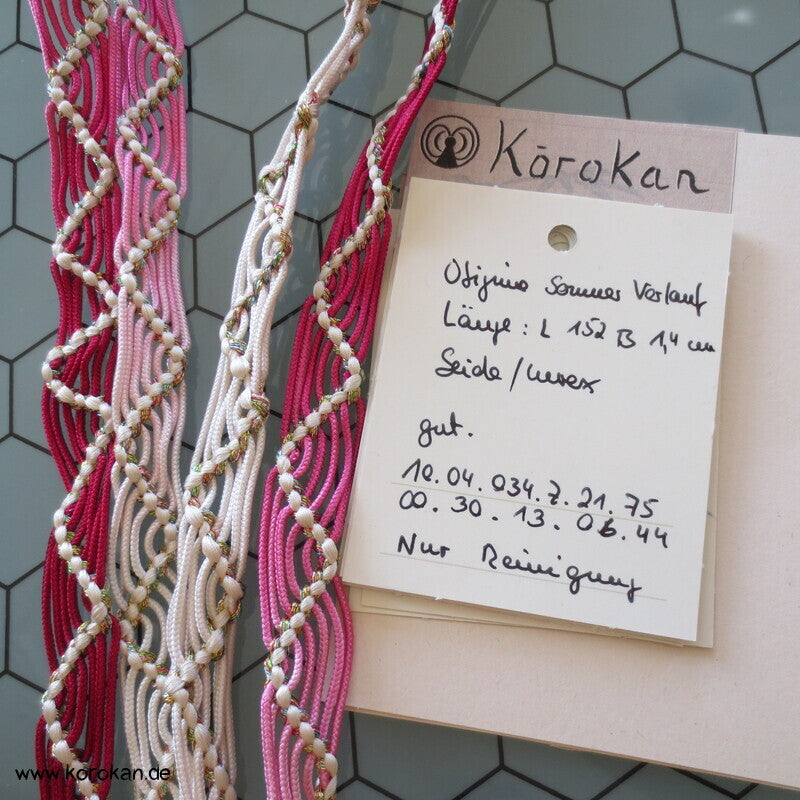 KōroKan
Obijime Sommer Verlauf
Länge: L 152 B 1,4 cm
Seide/Lurex
gut.
10.04.034.7.21.75
00.30.13.06.44
Nur Reinigung
www.korokan.de